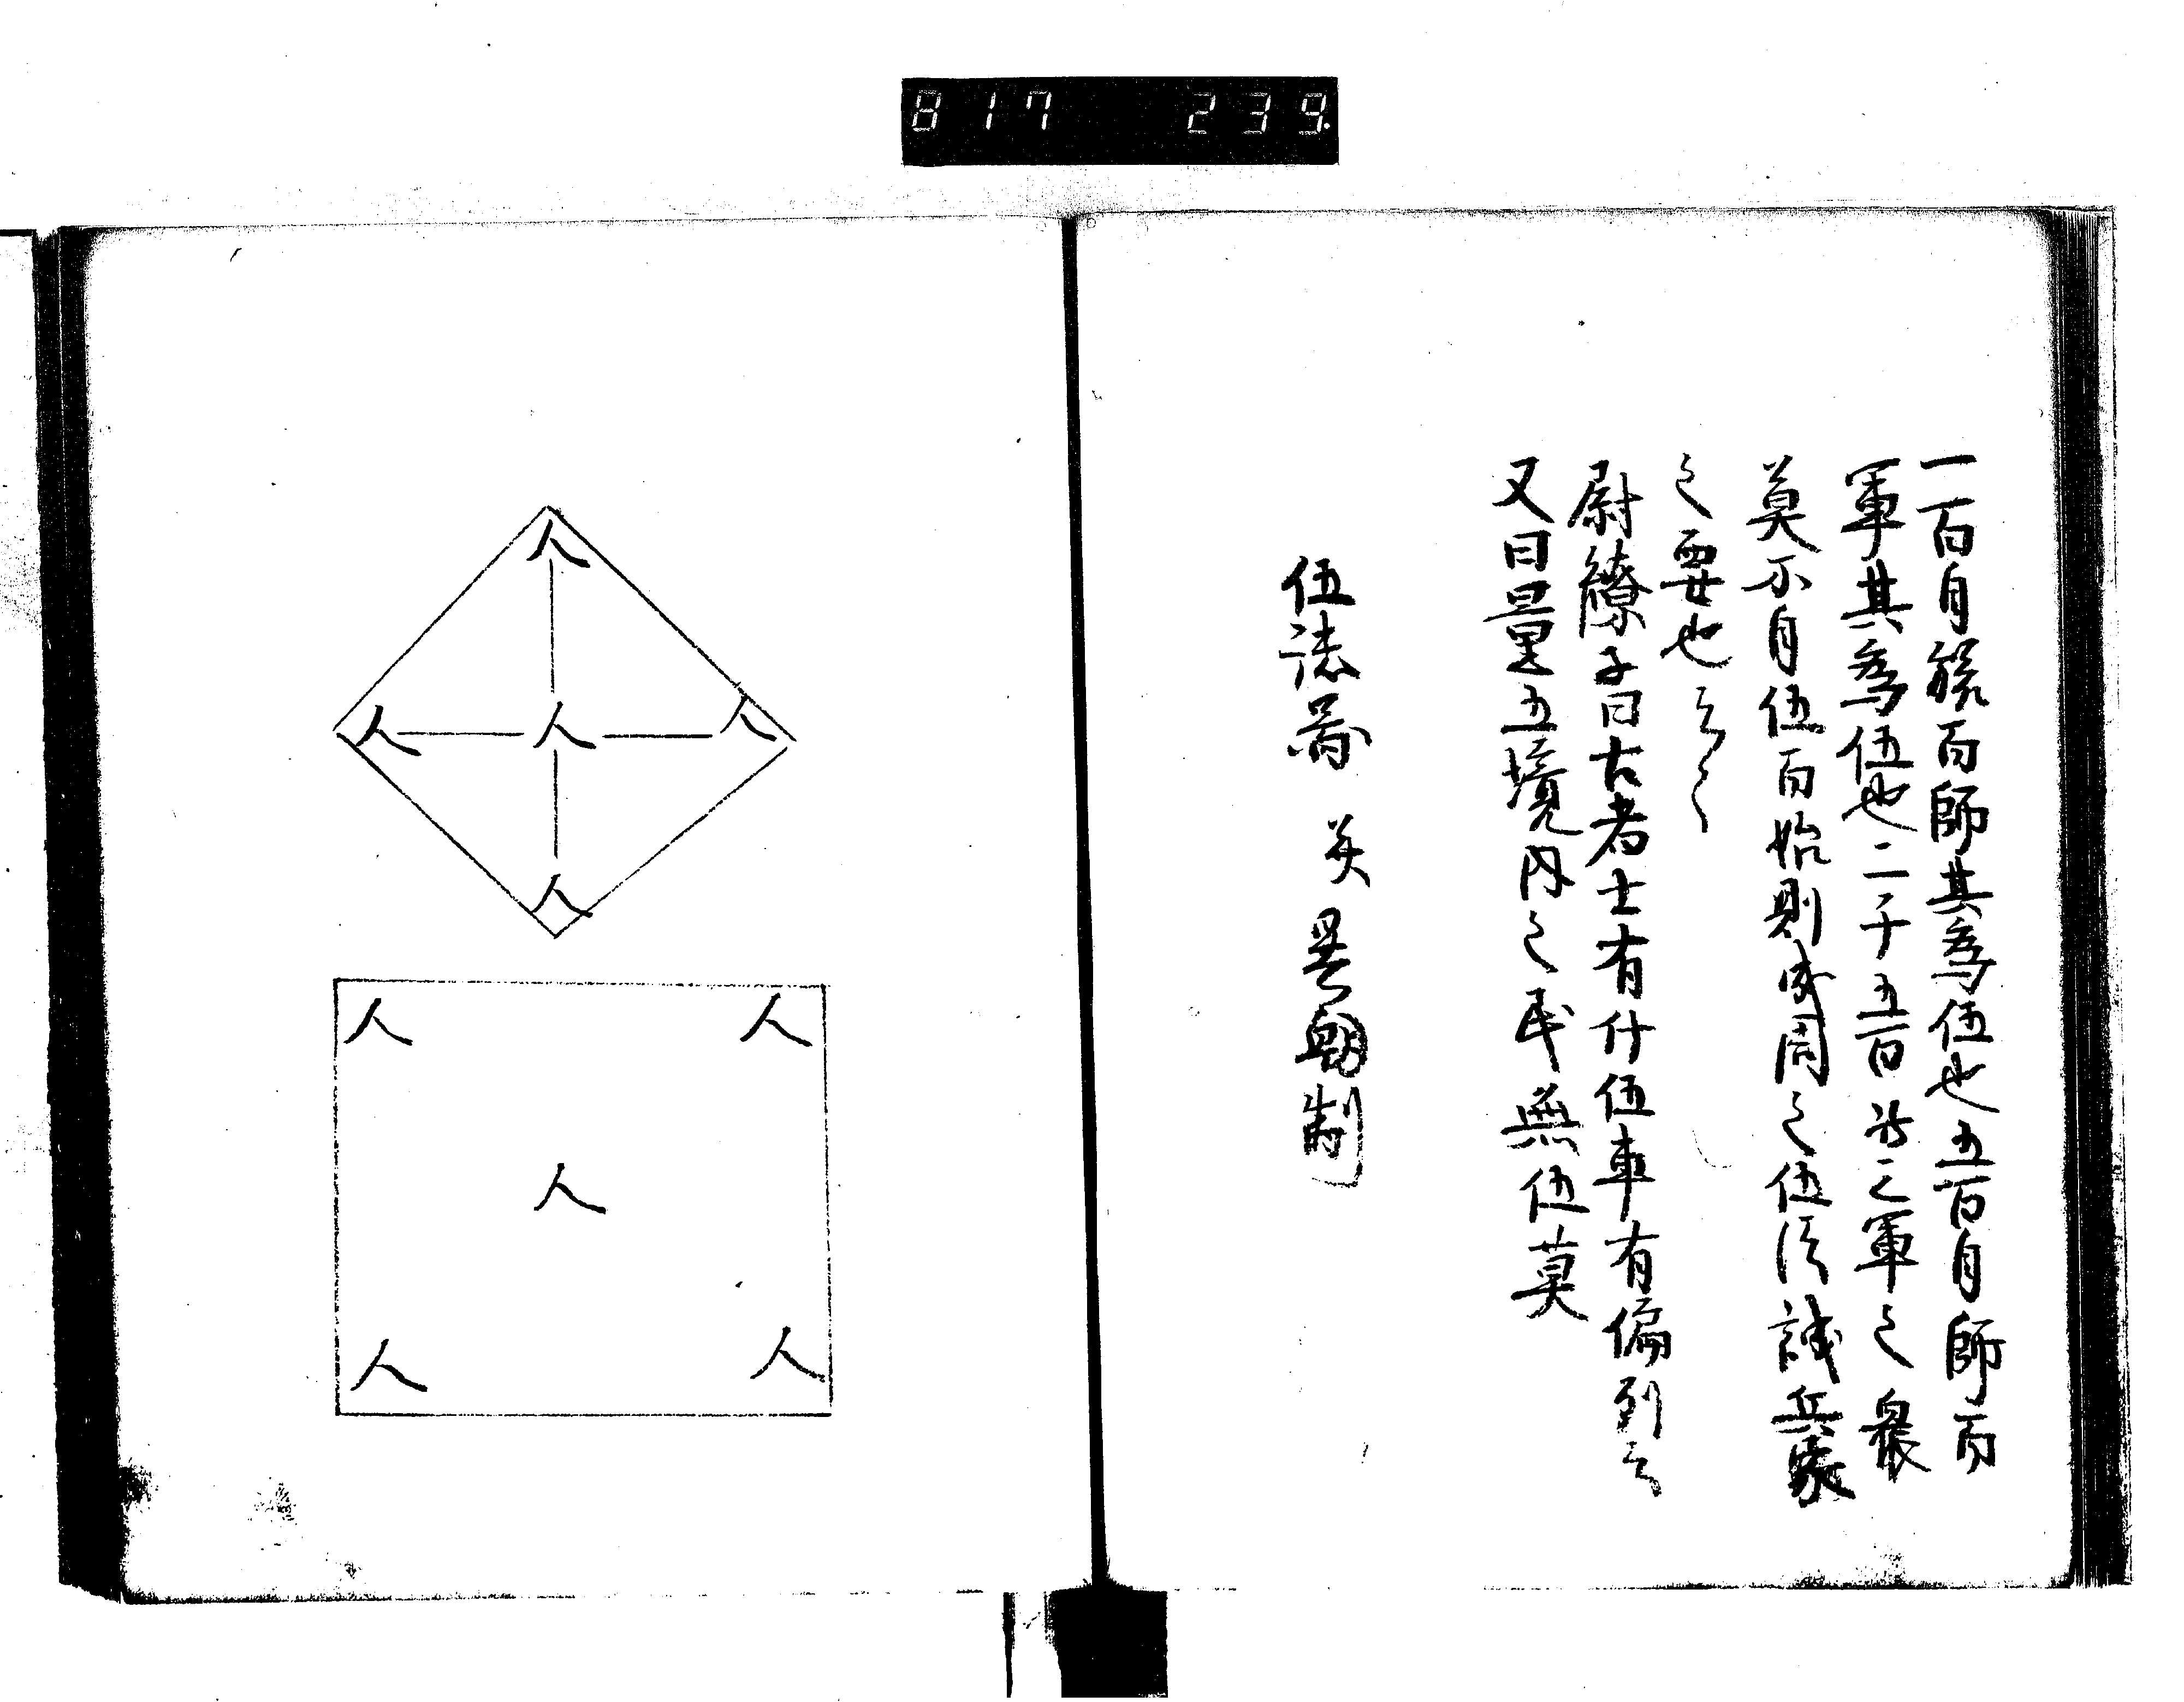 817 239.
一百自旅而師其為伍也五百自師而
軍其為伍也二千五百此之軍之衆
莫不自伍而始則成周之伍法誠兵家
之要也云々
尉繚子曰古者士有什伍車有偏列云
又曰量五境内之民無伍莫
伍法啚 異朝制
人
人 人 人
人
人 人
人
人 人